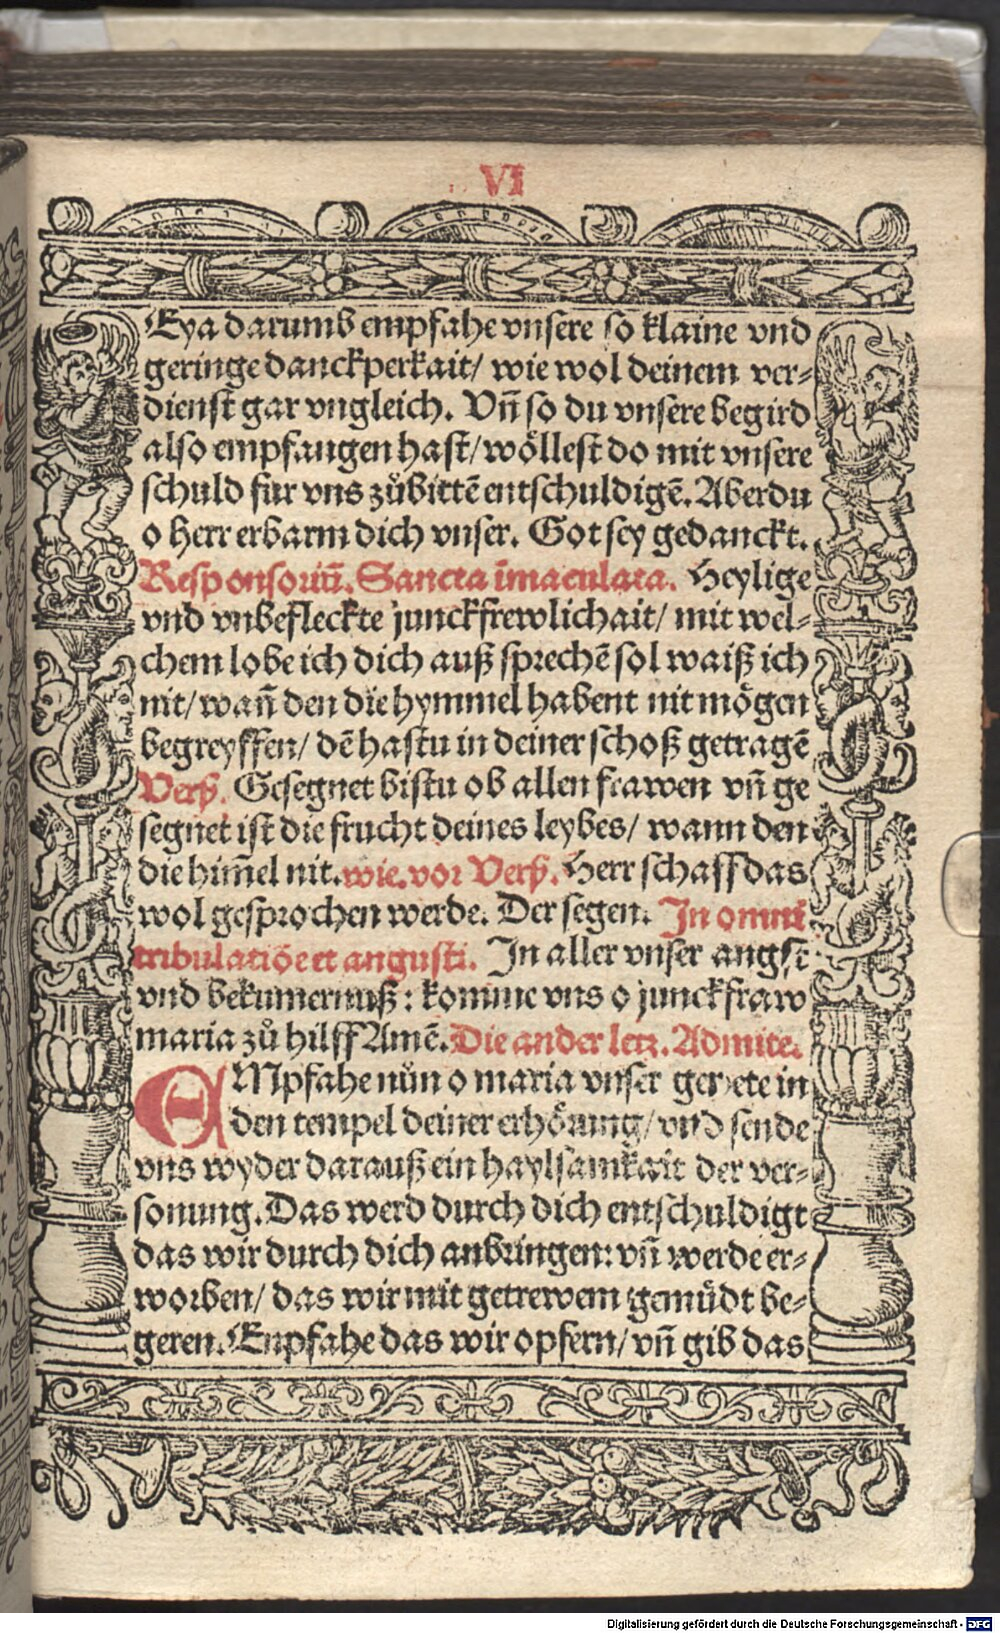 VI
Eya darumb empfahe vnsere so klaine vnd
geringe danckperkait/ wie wol deinem ver⸗
dienst gar vngleich. Vn̄ so du vnsere begird
also empfangen hast/ wöllest do mit vnsere
schuld fur vns zůbittē entschuldigē. Aber du
o herr erbarm dich vnser. Got sey gedanckt.
Responsoriū. Sancta īmaculata. Heylige
vnd vnbefleckte junckfrewlichait/ mit wel⸗
chem lobe ich dich auß sprechē sol waiß ich
nit/ wan̄ den die hymmel habent nit mögen
begreyffen/ dē hastu in deiner schoß getragē
Verß. Gesegnet bistu ob allen frawen vn̄ ge
segnet ist die frucht deines leybes/ wann den
die him̄el nit. wie. vor Verß. Herr schaff das
wol gesprochen werde. Der segen. In omni
tribulatiōe et angusti. In aller vnser angst
vnd bekumernuß: komme vns o junckfraw
maria zů hilff Amē. Die ander letz. Admitte.
EMpfahe nůn o maria vnser gebete in
den tempel deiner erhörung/ vnd sende
vns wyder darauß ein haylsamkait der ver⸗
sonung. Das werd durch dich entschuldigt
das wir durch dich anbringen: vn̄ werde er⸗
worben/ das wir mit getrewem gemüdt be⸗
geren. Enpfahe das wir opfern/ vn̄ gib das
Digitalisierung gefördert durch die Deutsche Forschungsgemeinschaft - DFG